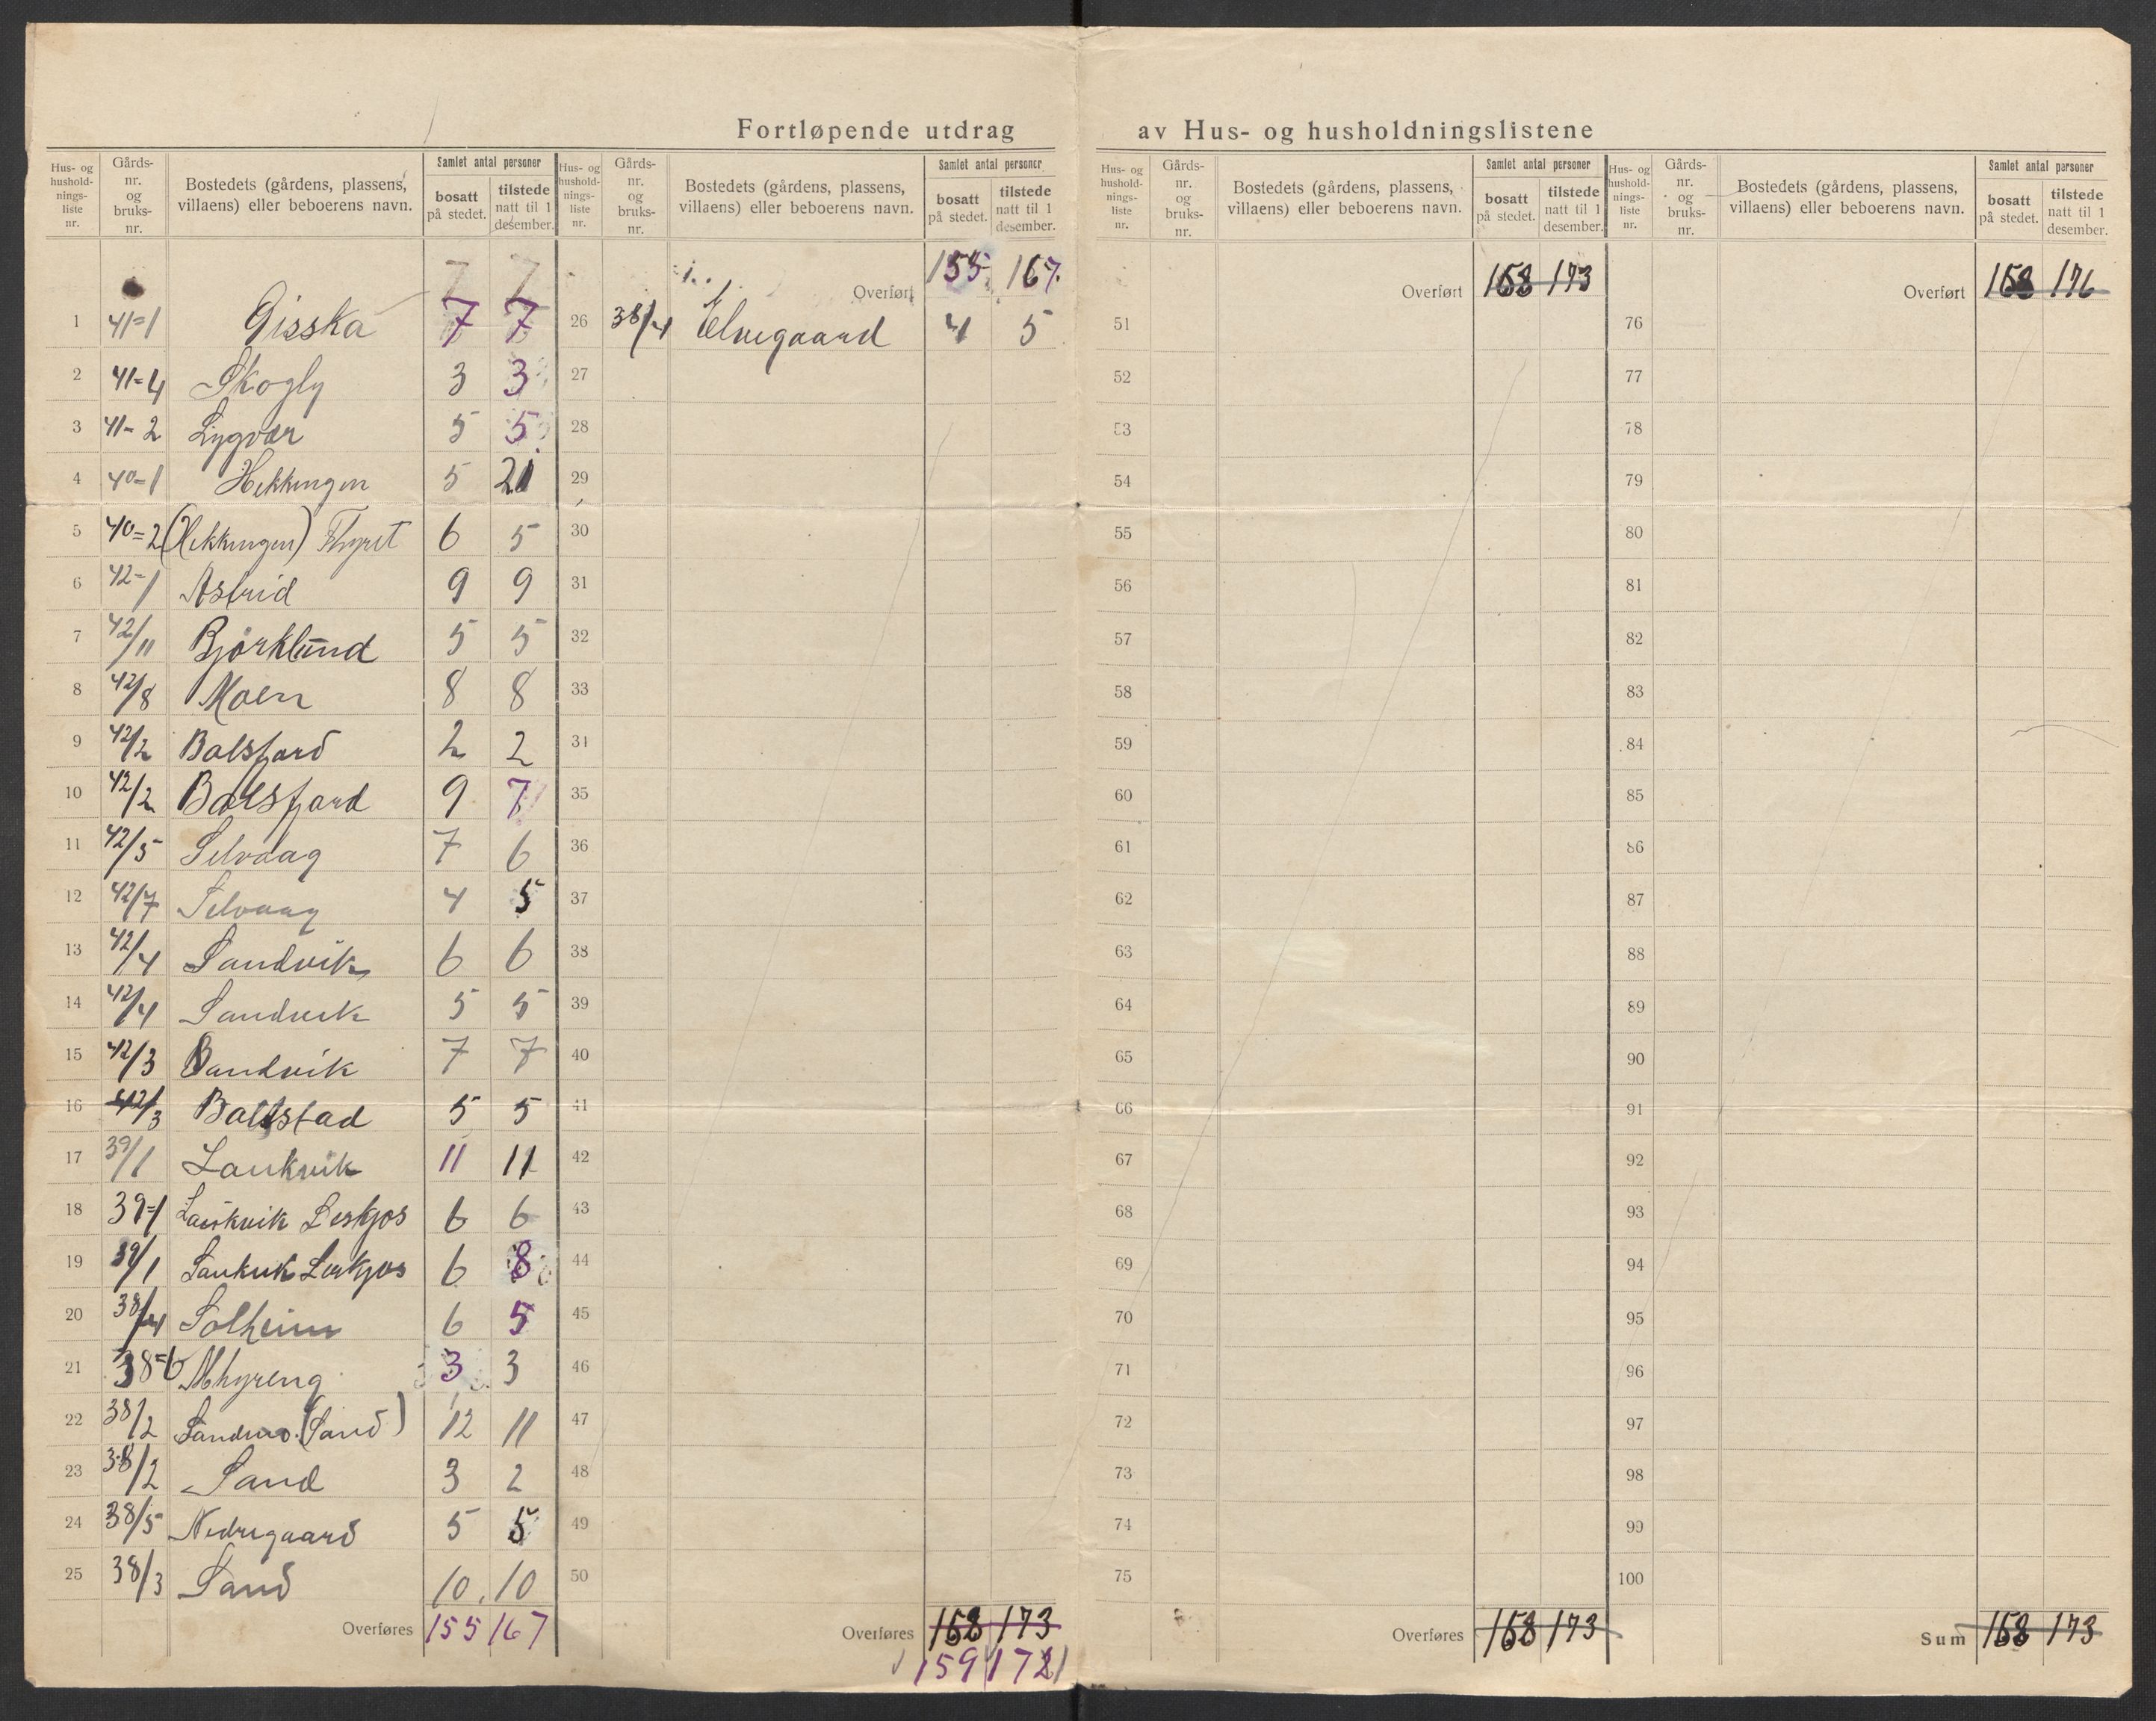 Fortløpende utdrag av Hus- og husholdningslistene
Hus- og husholdnings-liste nr. Gårds-nr. og bruks-nr. Bostedets (gårdens, plassens, villaens) eller beboerens navn. Samlet antal personer bosatt på stedet. tilstede natt til 1 desember.
Hus- og husholdnings-liste nr. Gårds-nr. og bruks-nr. Bostedets (gårdens, plassens, villaens) eller beboerens navn. Samlet antal personer bosatt på stedet. tilstede natt til 1 desember.
Hus- og husholdnings-liste nr. Gårds-nr. og bruks-nr. Bostedets (gårdens, plassens, villaens) eller beboerens navn. Samlet antal personer bosatt på stedet. tilstede natt til 1 desember.
Hus- og husholdnings-liste nr. Gårds-nr. og bruks-nr. Bostedets (gårdens, plassens, villaens) eller beboerens navn. Samlet antal personer bosatt på stedet. tilstede natt til 1 desember.
7 7
1 41=1 Gisska 7 7
2 41=4 Skogly 3 3
3 41-2 Lygvær 5 5
4 40=1 Hekkingen 5 21
5 40=2 (Hekkingen) 6 5
6 42-1 Astrid 9 9
7 42/11 Bjørklund 5 5
8 42/8 Moen 8 8
9 42/2 Balsfjord 2 2
10 42/2 Balsfjord 9 7
11 42/5 Selvaag 7 6
12 42/7 Selvaag 4 5
13 42/4 Sandvik 6 6
14 42/4 Sandvik 5 5
15 42/3 Sandvik 7 7
16 42/3 Ballstad 5 5
17 39/1 Laukvik 11 11
18 39=1 Laukvik Leskjos 6 6
19 39/1 Laukvik Leskjos 6 8
20 38/4 Solheim 6 5
21 38=6 Mhyreng 3 3
22 38/2 (Sand) 12 11
23 38/2 Sand 3 2
24 38/5 Nedregaard 5 5
25 38/3 Sand 10 10
Overføres 155 167
Overført 155 167
26 38/4 Elvegaard 4 5
27
28
29
30
31
32
33
34
35
36
37
38
39
40
41
42
43
44
45
46
47
48
49
50
Overføres 158 173
159 172
Overført 158 173
51
52
53
54
55
56
57
58
59
60
61
62
63
64
65
66
67
68
69
70
71
72
73
74
75
Overføres 158 173
Overført 158 176
76
77
78
79
80
81
82
83
84
85
86
87
88
89
90
91
92
93
94
95
96
97
98
99
100
Sum 158 173